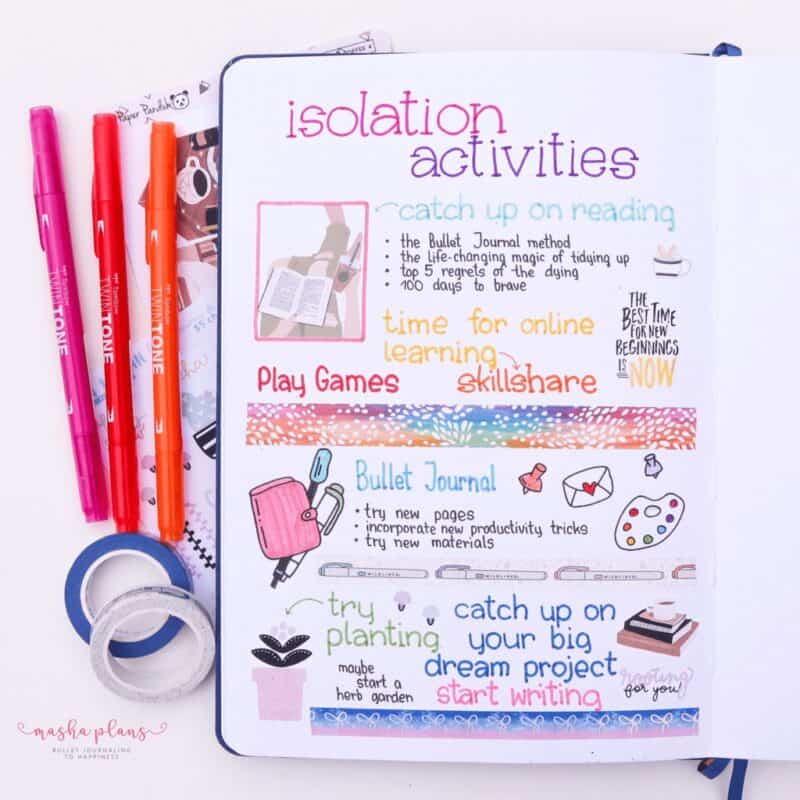 isolation
activities
catch up on reading
• the Bullet Journal method
• the life-changing magic of tidying up
• top 5 regrets of the dying
• 100 days to brave
time for online
learning
skillshare
THE
BEST TIME
FOR NEW
BEGINNINGS
IS NOW
Play Games
Bullet Journal
• try new pages
• incorporate new productivity tricks
• try new materials
try
planting
maybe
start a
herb garden
catch up on
your big
dream project
start writing
rooting
for you!
Paper Panduh
Tombow
TWINTONE
Tombow
TWINTONE
Tombow
TWINTONE
masha plans
BULLET JOURNALING
TO HAPPINESS